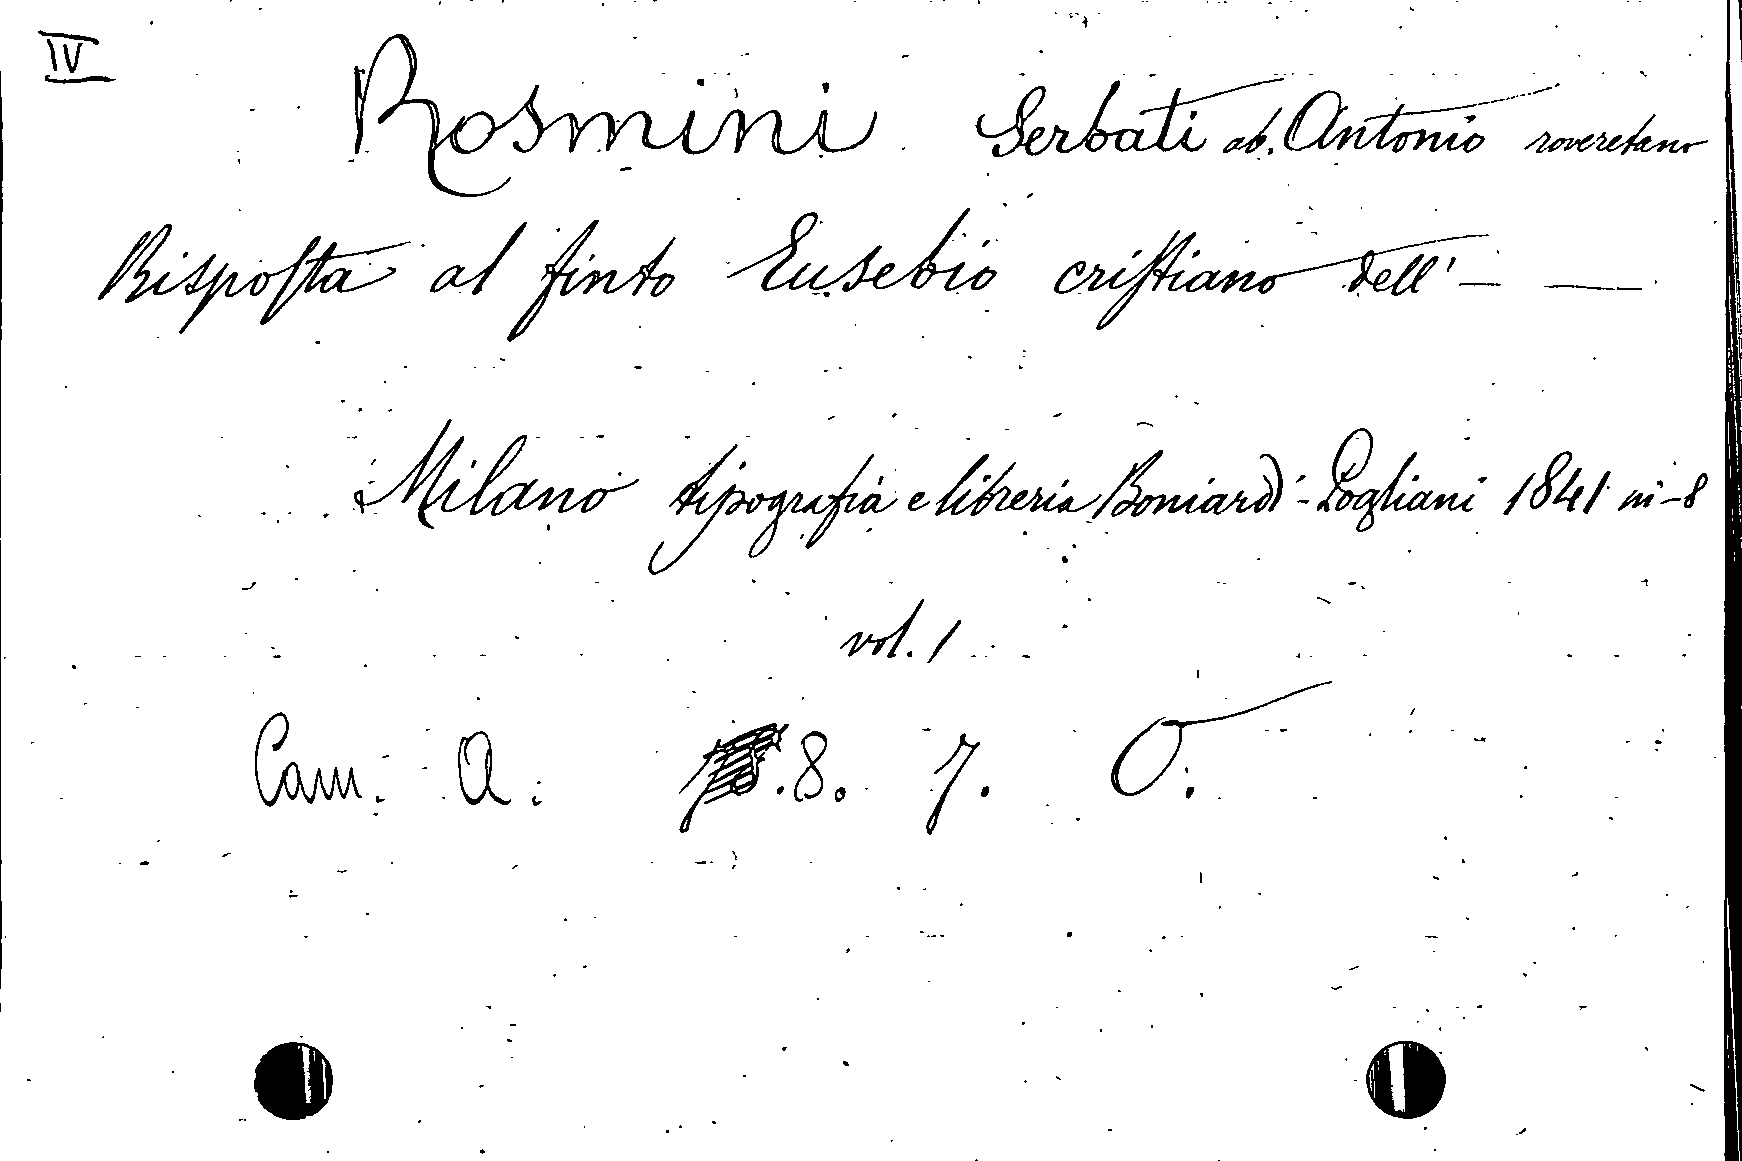 IV
Rosmini Serbati ab. Antonio roveretano
Risposta al finto Eusebio cristiano dell' — —
Milano tipografia e libreria Boniardi-Pogliani 1841 in-8
vol. 1
Cam. A. 8. 7. O.